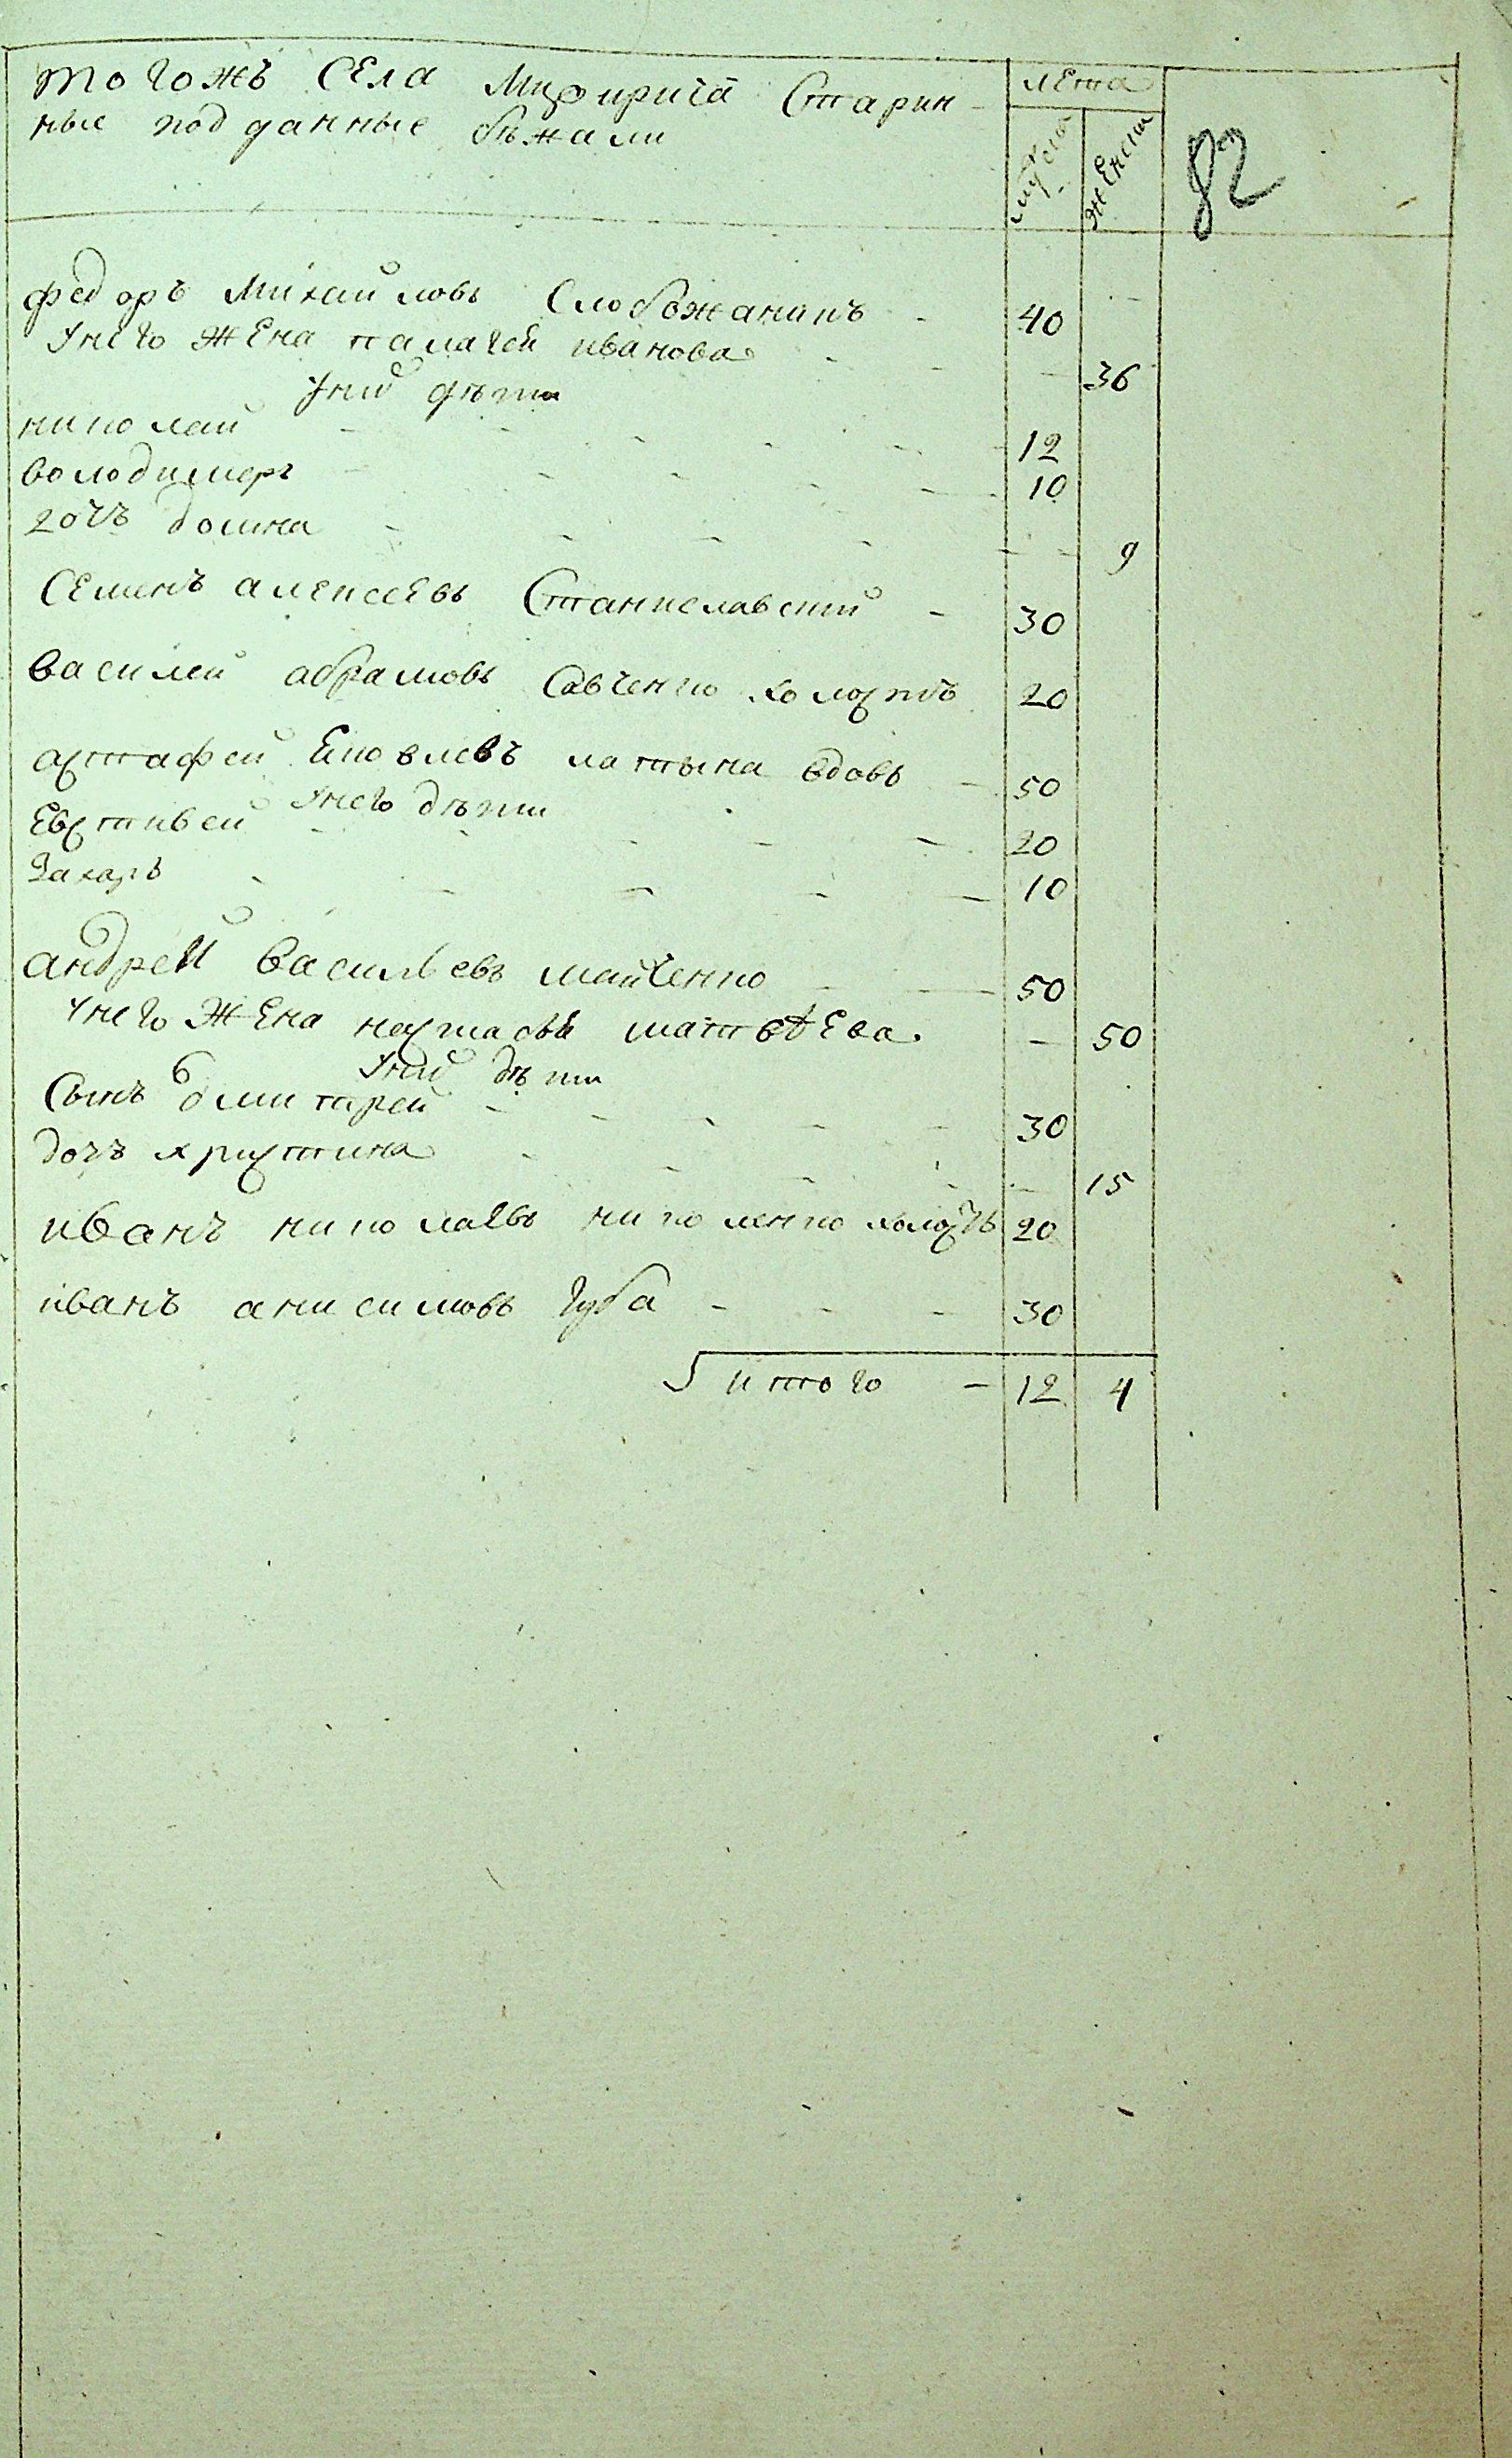 того жъ Села Старин
ные подданные бѣжали
лета
мужска
женска
82
федоръ Михайловъ Слобожанинъ 40
у него жена палагея иванова 36
у них дѣти
николай 12
володимеръ 10
дочъ домна 9
Семенъ алексеевъ Станиславский 30
василей абрамовъ Савченко холостъ 20
астафей Ековлевъ латына вдовъ 50
у него дѣти
Евстифей 20
Захаръ 10
андрей васильевъ майченко 50
у него жена настасья матвѣева 50
у них дѣти
Сынъ дмитрей 30
дочъ христина 15
иванъ николаевъ николенко холостъ 20
иванъ анисимовъ губа 30
итого 12 4